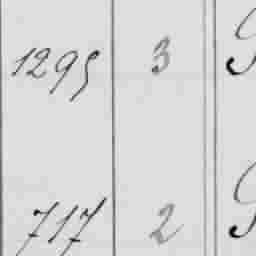 1295 3
717 2